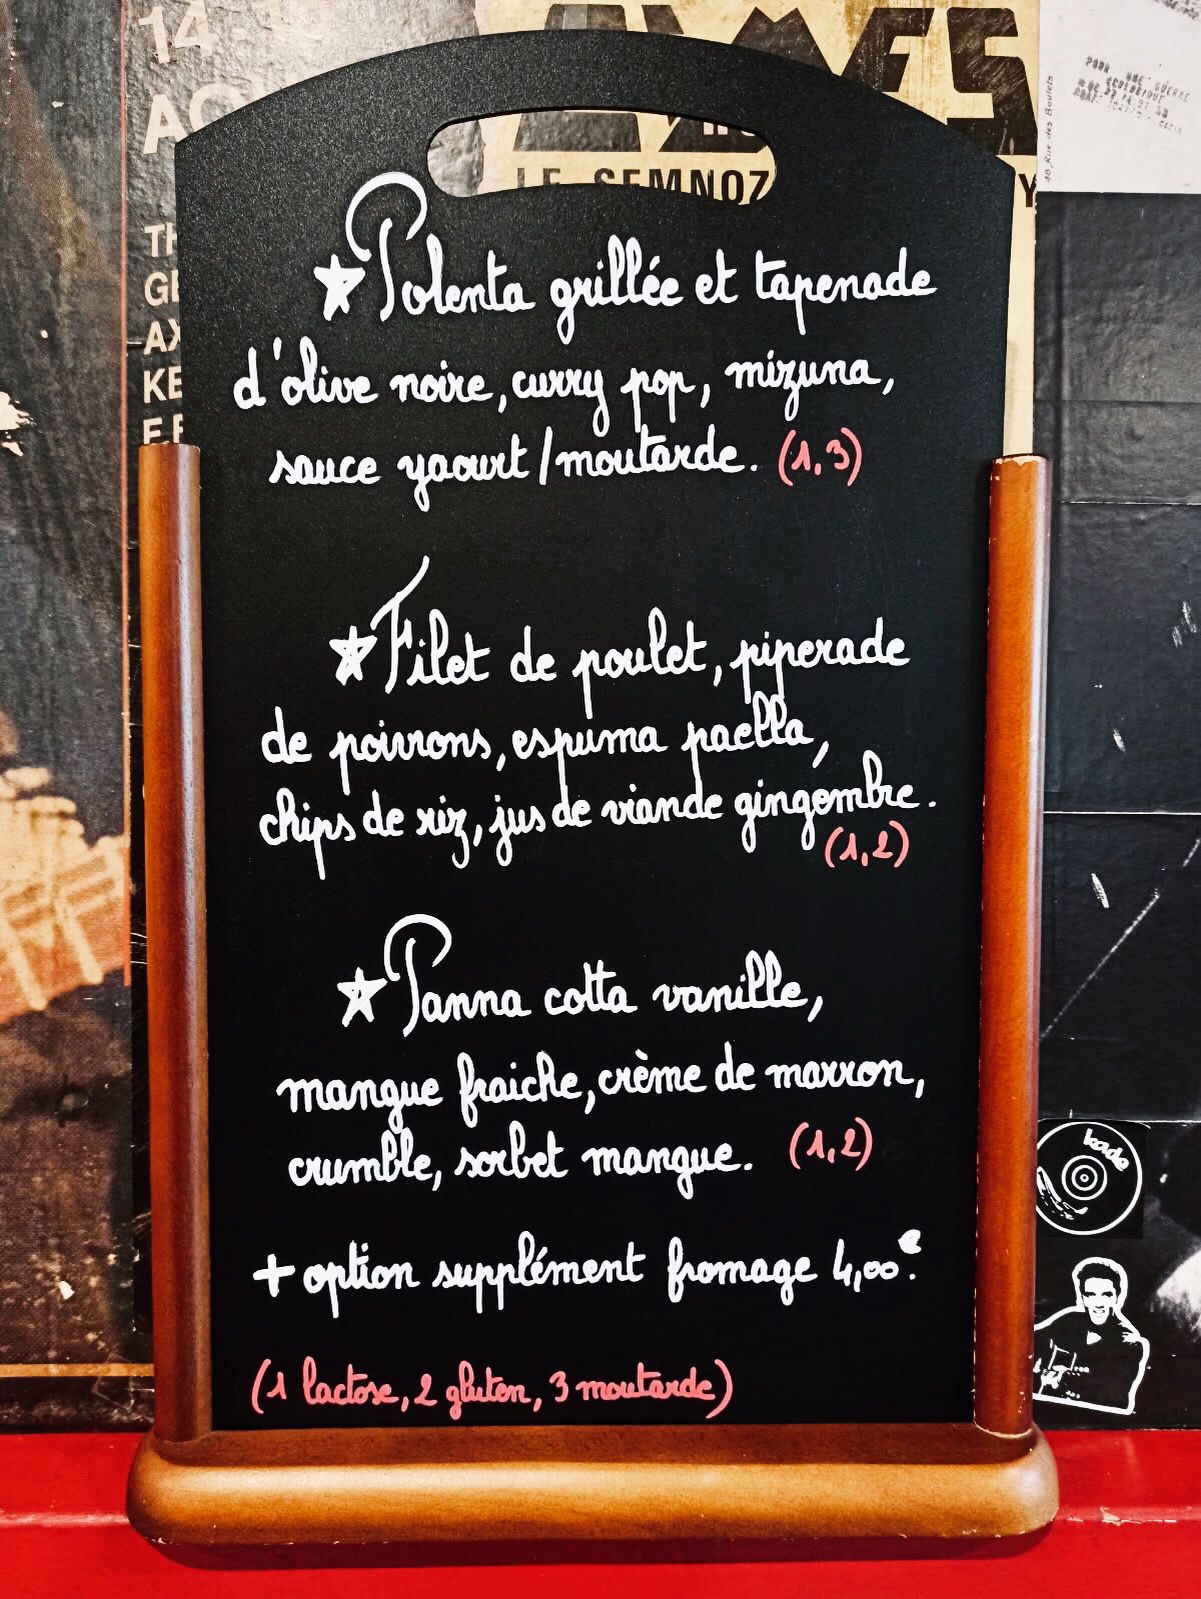 14 - 18
AC
TH
GE
AX
KE
LE SEMNOZ
Y
POUR UNE GUERRE
ECOLOGIQUE
48, Rue des Boulets
★Polenta grillée et tapenade
d'olive noire, curry pop, mizuna,
sauce yaourt/moutarde. (1,3)
★Filet de poulet, piperade
de poivrons, espuma paella,
chips de riz, jus de viande gingembre.
(1,2)
★Panna cotta vanille,
mangue fraiche, crème de marron,
crumble, sorbet mangue. (1,2)
+ option supplément fromage 4,00€.
(1 lactose, 2 gluten, 3 moutarde)
kade